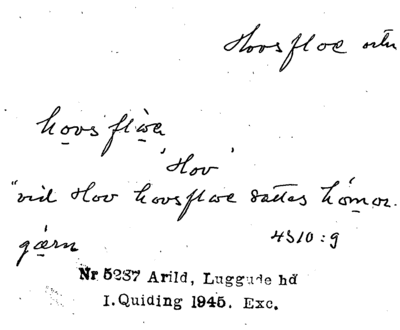 Hovsfloe ortn
hovsflwe
'Hov'
"vid Hov hovsflwe sattes hómor.
gärn
4310:9
Nr 5237 Arild, Luggude hd
I.Quiding 1945. Exc.